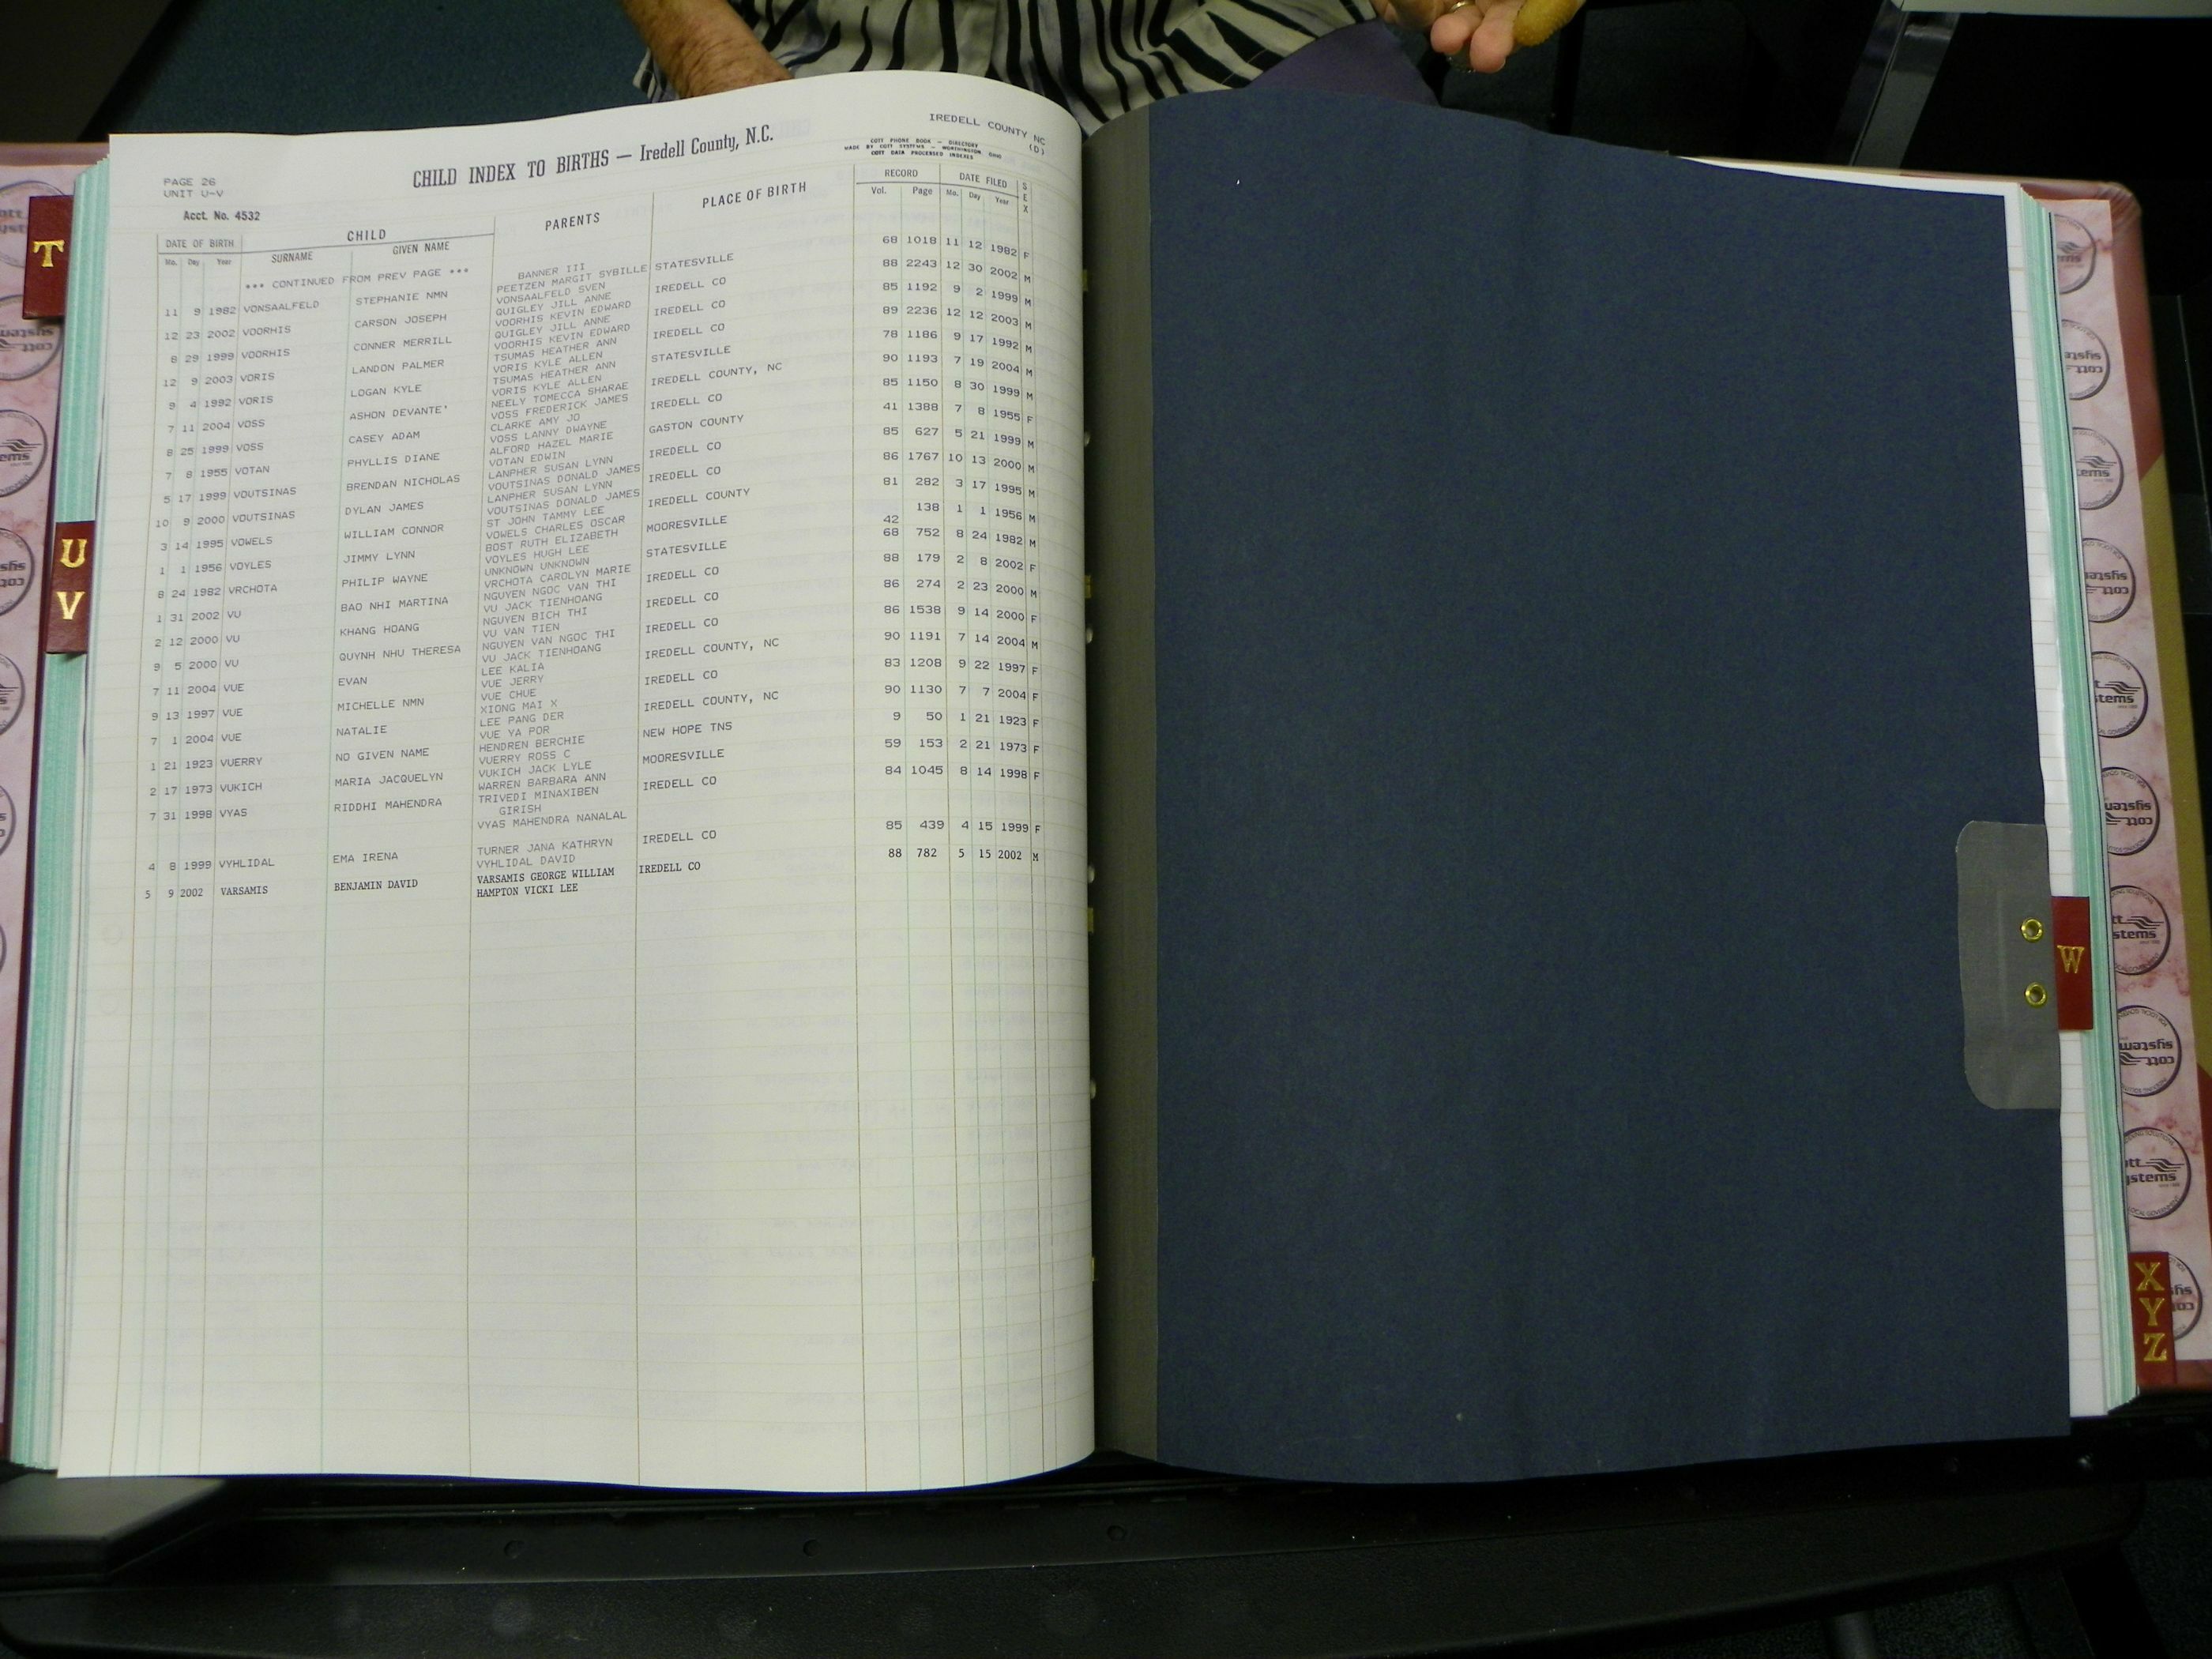 IREDELL COUNTY NC
(D)
COTT PHONE BOOK — DIRECTORY
MADE BY COTT SYSTEMS — WORTHINGTON OHIO
COTT DATA PROCESSED INDEXES
CHILD INDEX TO BIRTHS — Iredell County, N.C.
PAGE 26
UNIT U-V
Acct. No. 4532
DATE OF BIRTH CHILD PARENTS PLACE OF BIRTH RECORD DATE FILED SEX
Mo. Day Year SURNAME GIVEN NAME Vol. Page Mo. Day Year
*** CONTINUED FROM PREV PAGE *** BANNER III
11 9 1982 VONSAALFELD STEPHANIE NMN PEETZEN MARGIT SYBILLE STATESVILLE 68 1018 11 12 1982 F
VONSAALFELD SVEN
12 23 2002 VOORHIS CARSON JOSEPH QUIGLEY JILL ANNE IREDELL CO 88 2243 12 30 2002 M
VOORHIS KEVIN EDWARD
8 29 1999 VOORHIS CONNER MERRILL QUIGLEY JILL ANNE IREDELL CO 85 1192 9 2 1999 M
VOORHIS KEVIN EDWARD
12 9 2003 VORIS LANDON PALMER TSUMAS HEATHER ANN IREDELL CO 89 2236 12 12 2003 M
VORIS KYLE ALLEN
9 4 1992 VORIS LOGAN KYLE TSUMAS HEATHER ANN STATESVILLE 78 1186 9 17 1992 M
VORIS KYLE ALLEN
7 11 2004 VOSS ASHON DEVANTE' NEELY TOMECCA SHARAE IREDELL COUNTY, NC 90 1193 7 19 2004 M
VOSS FREDERICK JAMES
8 25 1999 VOSS CASEY ADAM CLARKE AMY JO IREDELL CO 85 1150 8 30 1999 M
VOSS LANNY DWAYNE
7 8 1955 VOTAN PHYLLIS DIANE ALFORD HAZEL MARIE GASTON COUNTY 41 1388 7 8 1955 F
VOTAN EDWIN
5 17 1999 VOUTSINAS BRENDAN NICHOLAS LANPHER SUSAN LYNN IREDELL CO 85 627 5 21 1999 M
VOUTSINAS DONALD JAMES
10 9 2000 VOUTSINAS DYLAN JAMES LANPHER SUSAN LYNN IREDELL CO 86 1767 10 13 2000 M
VOUTSINAS DONALD JAMES
3 14 1995 VOWELS WILLIAM CONNOR ST JOHN TAMMY LEE IREDELL COUNTY 81 282 3 17 1995 M
VOWELS CHARLES OSCAR
1 1 1956 VOYLES JIMMY LYNN BOST RUTH ELIZABETH MOORESVILLE 42 138 1 1 1956 M
VOYLES HUGH LEE
8 24 1982 VRCHOTA PHILIP WAYNE UNKNOWN UNKNOWN STATESVILLE 68 752 8 24 1982 M
VRCHOTA CAROLYN MARIE
1 31 2002 VU BAO NHI MARTINA NGUYEN NGOC VAN THI IREDELL CO 88 179 2 8 2002 F
VU JACK TIENHOANG
2 12 2000 VU KHANG HOANG NGUYEN BICH THI IREDELL CO 86 274 2 23 2000 M
VU VAN TIEN
9 5 2000 VU QUYNH NHU THERESA NGUYEN VAN NGOC THI IREDELL CO 86 1538 9 14 2000 F
VU JACK TIENHOANG
7 11 2004 VUE EVAN LEE KALIA IREDELL COUNTY, NC 90 1191 7 14 2004 M
VUE JERRY
9 13 1997 VUE MICHELLE NMN VUE CHUE IREDELL CO 83 1208 9 22 1997 F
XIONG MAI X
7 1 2004 VUE NATALIE LEE PANG DER IREDELL COUNTY, NC 90 1130 7 7 2004 F
VUE YA POR
1 21 1923 VUERRY NO GIVEN NAME HENDREN BERCHIE NEW HOPE TNS 9 50 1 21 1923 F
VUERRY ROSS C
2 17 1973 VUKICH MARIA JACQUELYN VUKICH JACK LYLE MOORESVILLE 59 153 2 21 1973 F
WARREN BARBARA ANN
7 31 1998 VYAS RIDDHI MAHENDRA TRIVEDI MINAXIBEN IREDELL CO 84 1045 8 14 1998 F
GIRISH
VYAS MAHENDRA NANALAL
4 8 1999 VYHLIDAL EMA IRENA TURNER JANA KATHRYN IREDELL CO 85 439 4 15 1999 F
VYHLIDAL DAVID
5 9 2002 VARSAMIS BENJAMIN DAVID VARSAMIS GEORGE WILLIAM IREDELL CO 88 782 5 15 2002 M
HAMPTON VICKI LEE
T
U
V
W
X
Y
Z
cott
systems